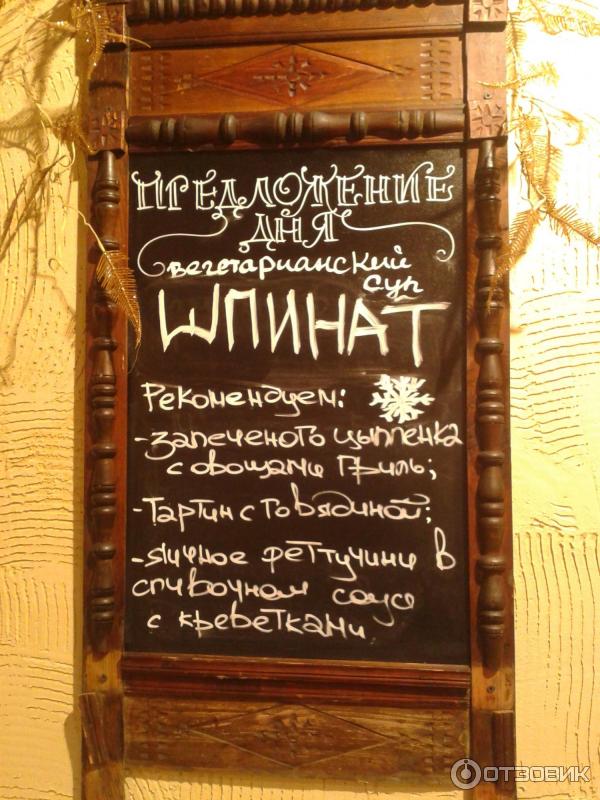 ПРЕДЛОЖЕНИЕ
ДНЯ
вегетарианский
суп
ШПИНАТ
Рекомендуем:
-запеченого цыпленка
с овощами Гриль;
-Тартин с Говядиной;
-яичное феттучини в
сливочном соусе
с креветками
ОТЗОВИК